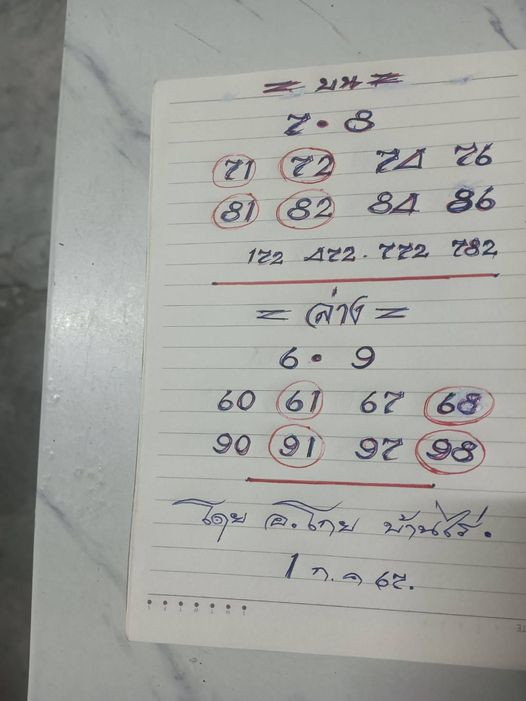 = บน =
7 • 8
71 72 74 76
81 82 84 86
172 472 . 772 782
= ล่าง =
6 • 9
60 61 67 68
90 91 97 98
โดย อ.โกย บ้านไร่.
1 ก.ค 67.